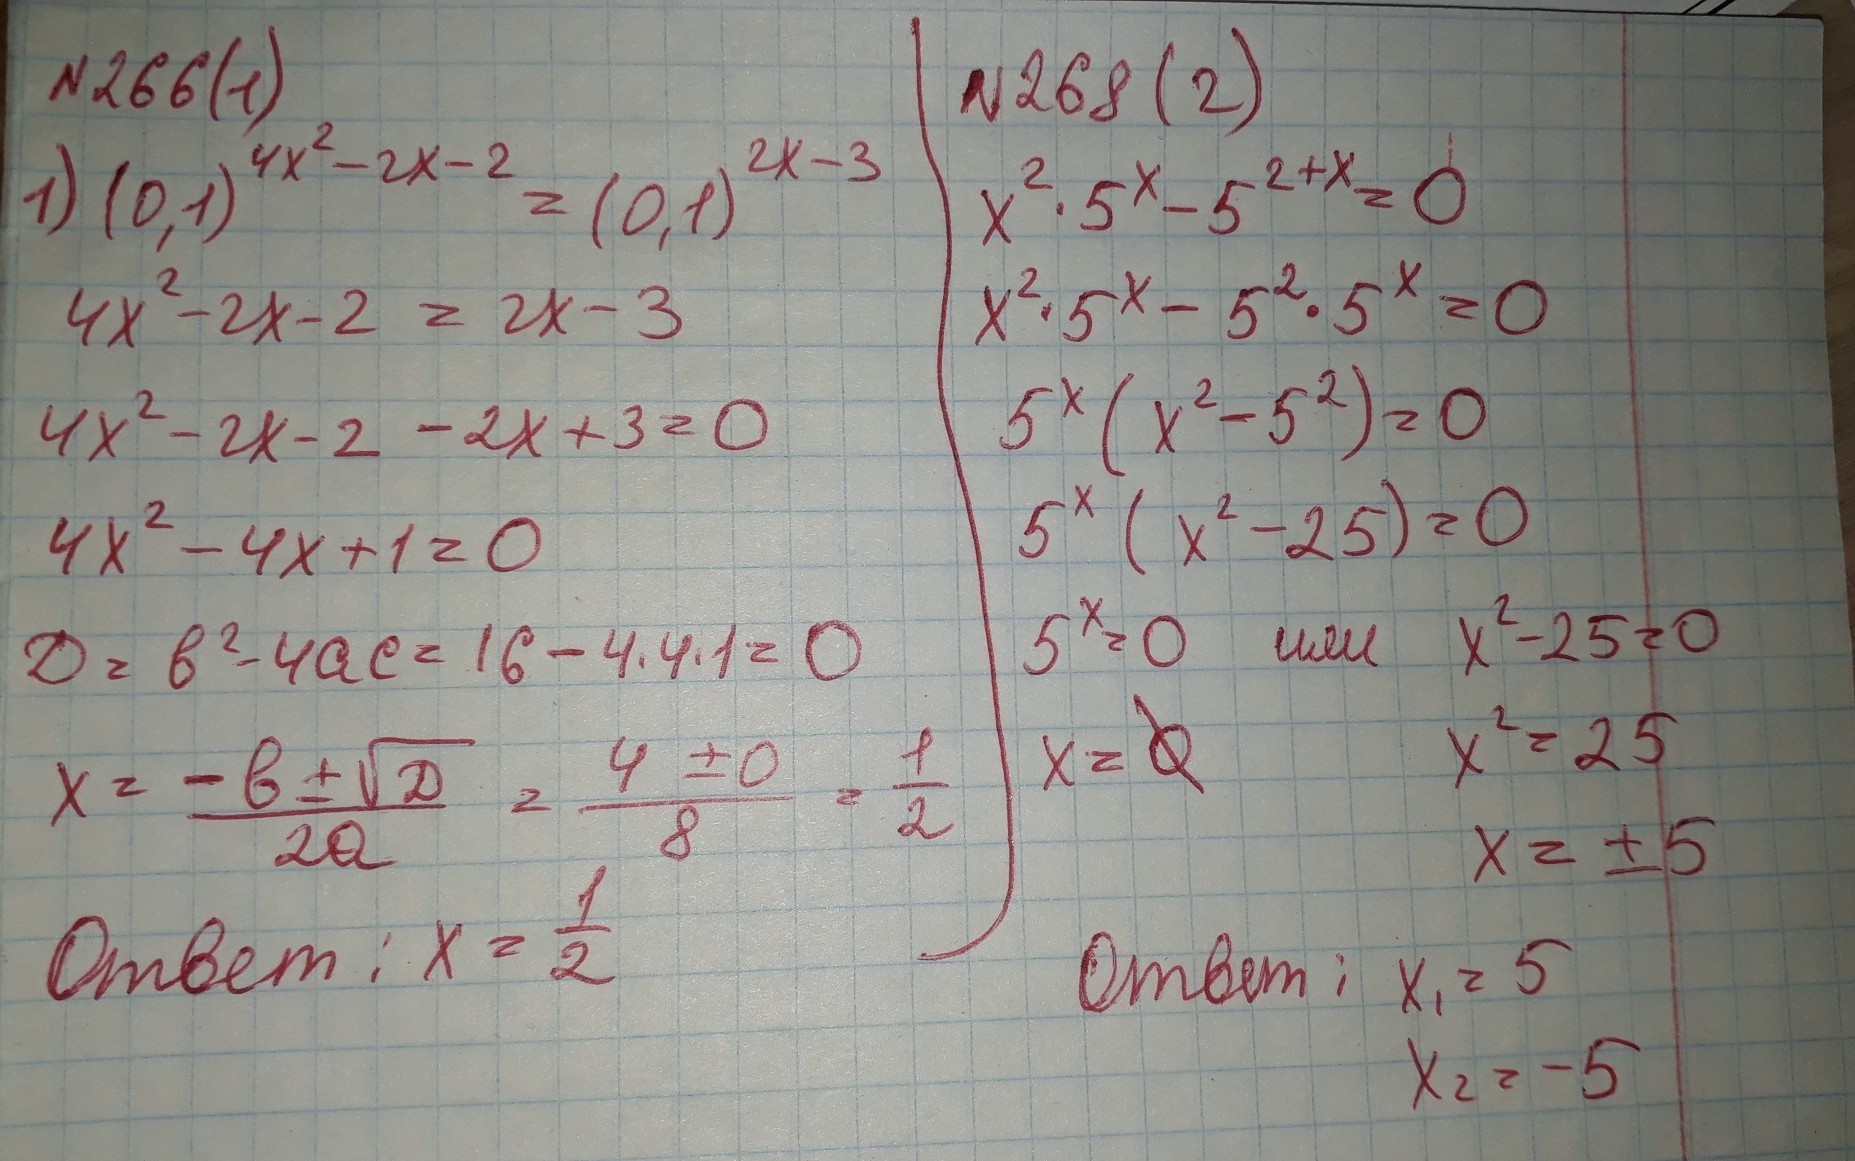 N266(1)
1) (0,1)^{4x²-2x-2} = (0,1)^{2x-3}
4x²-2x-2 = 2x-3
4x²-2x-2 -2x+3=0
4x²-4x+1=0
D= b²-4ac= 16-4·4·1=0
x= \frac{-b±√D}{2a} = \frac{4 ±0}{8} = \frac{1}{2}
Ответ: x = \frac{1}{2}
N268(2)
x²·5^x-5^{2+x}=0
x²·5^x-5²·5^x=0
5^x(x²-5²)=0
5^x(x²-25)=0
5^x=0 или x²-25=0
x=∅ x²=25
x=±5
Ответ: x₁=5
x₂=-5